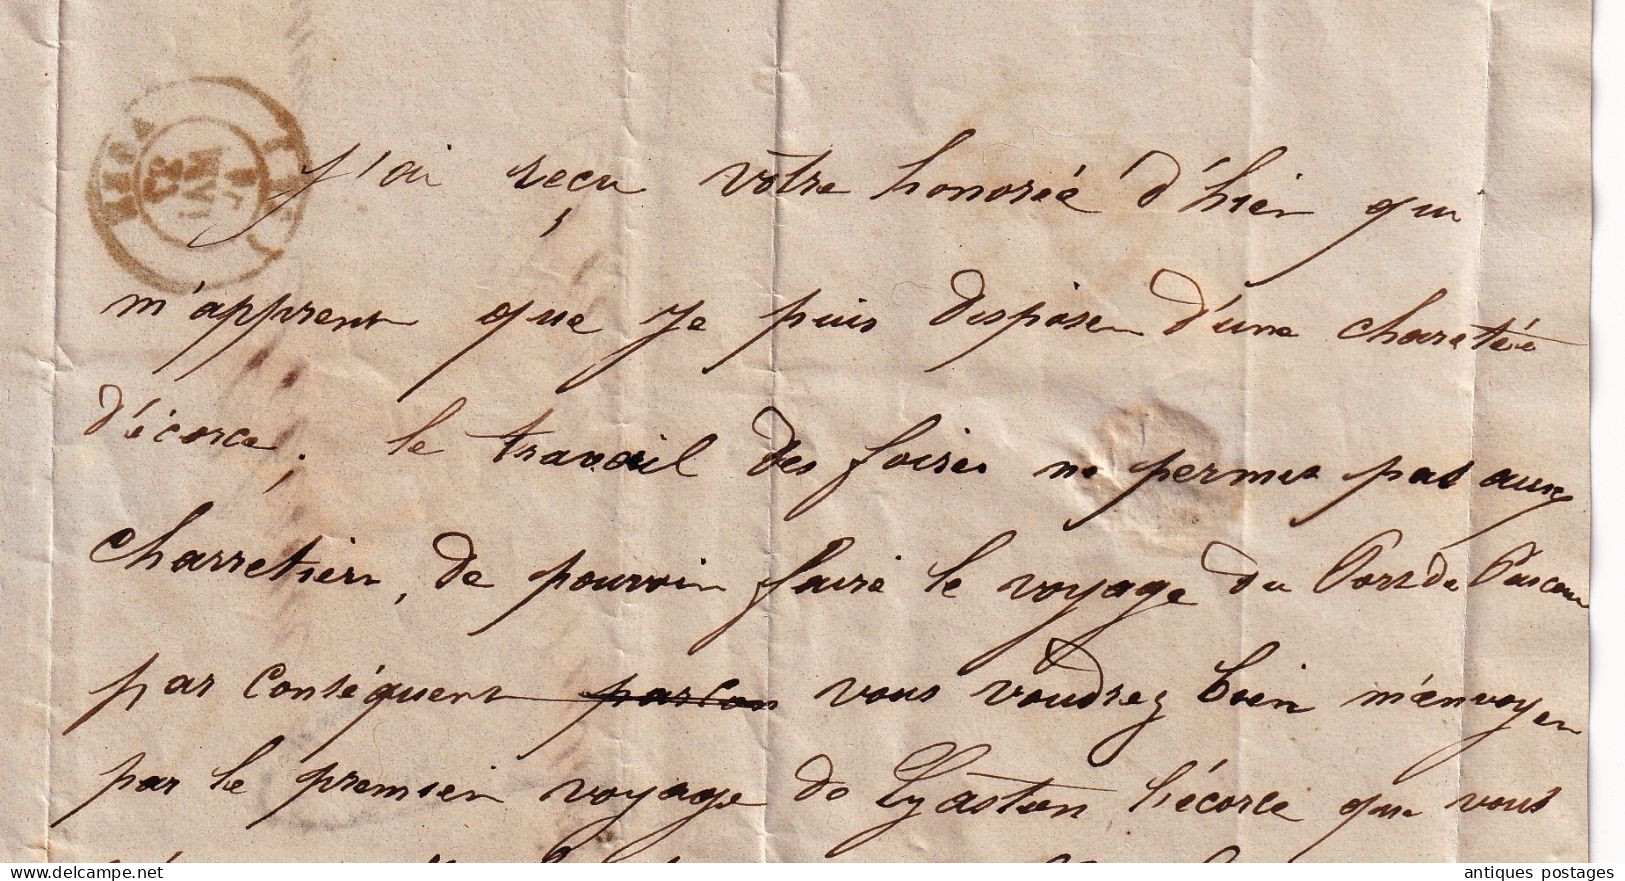 J'ai reçu vôtre honorée d'hier qui
m'apprent que je puis disposer d'une charetée
d'écorce, le travail des foires ne permet pas aux
charretiers, de pouvoir faire le voyage du Port de Pascau
par conséquent parcon vous voudrez bien m'envoyer
par le premier voyage de l'écorce que vous
delcampe.net
antiques postages